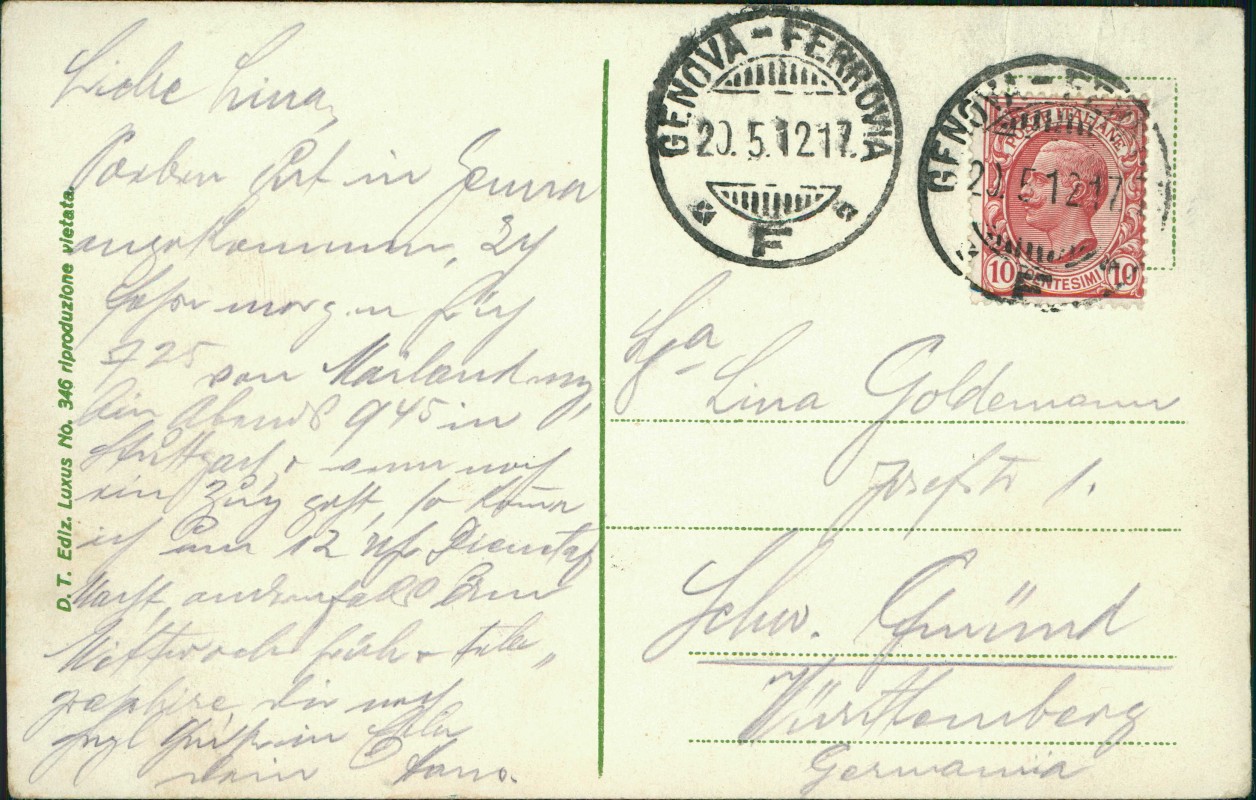 Liebe Lina,
Soeben gut in Genua
angekommen, Ich
fahre morgen früh
7 25 von Mailand weg,
bin Abends 9 45 in
Stuttgart, wenn noch
ein Zug geht, so komme
ich um 12 Uhr Dienstag
Nacht, andernfalls
Mittwoch früh. tele„
graphire dir noch
Hrzl Grüße
dein Hans.
D. T. Ediz. Luxus No. 346 riproduzione vietata.
GENOVA - FERROVIA
20.5.12 17.
F
GENOVA - FE
20.5.12 17
F
POSTE ITALIANE
10 CENTESIMI 10
Lina Goldemann
Josefstr 1.
Schw. Gmünd
Württemberg
Germania